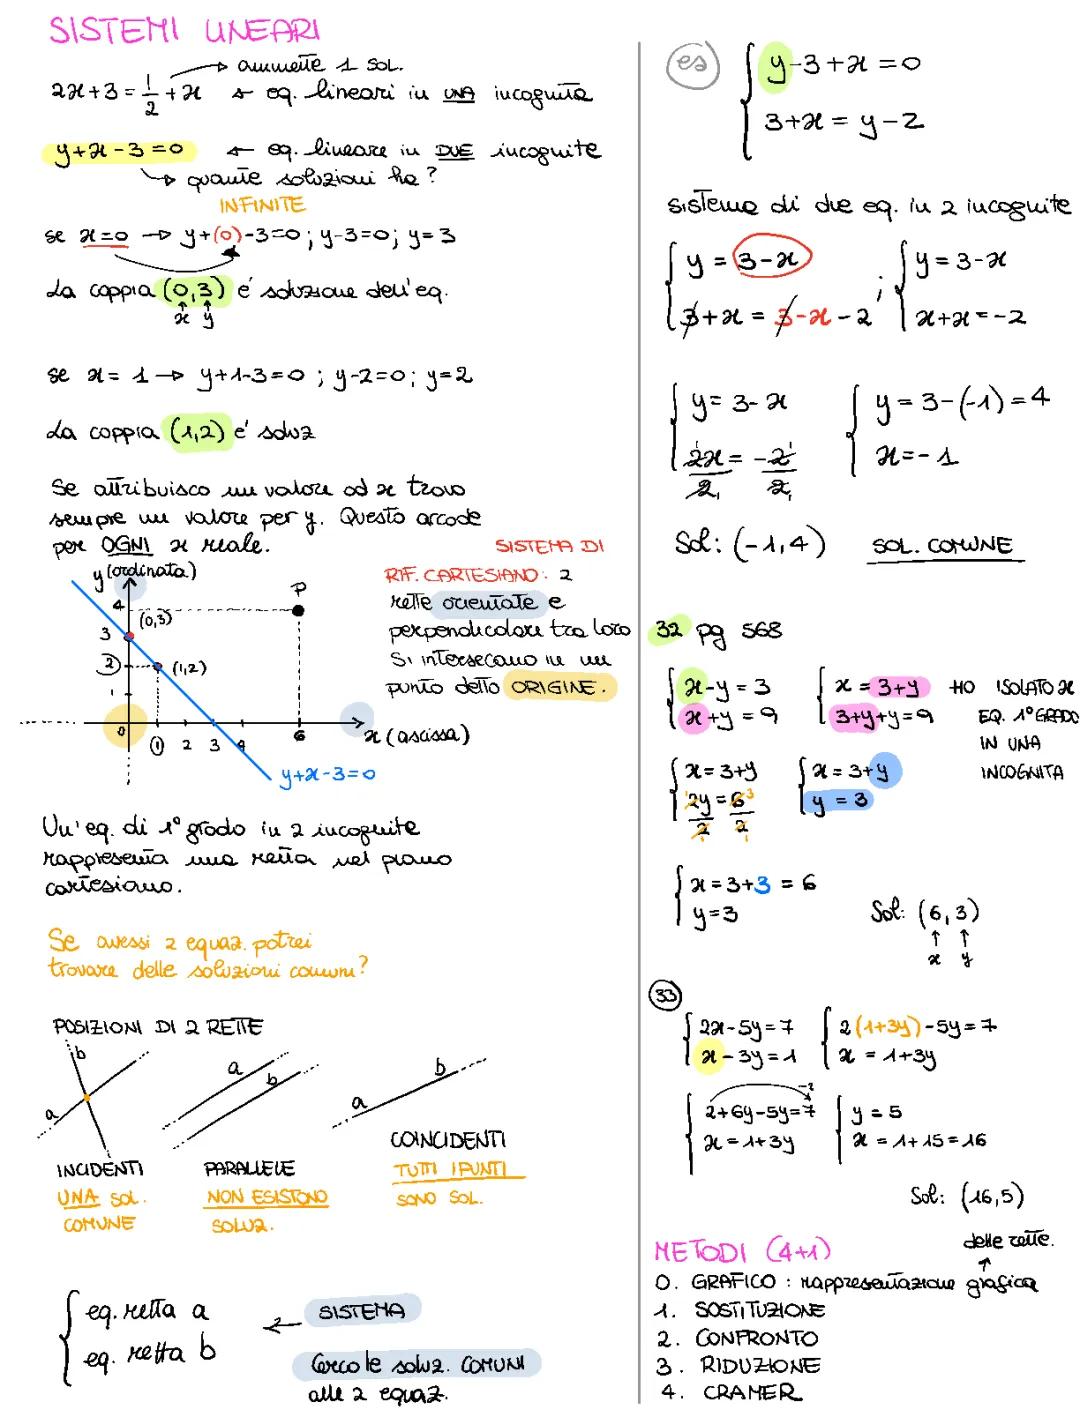 SISTEMI LINEARI
→ ammette 1 SOL.
2x+3 = 1/2 + x ← eq. lineari in UNA incognita
y+x-3=0 ← eq. lineare in DUE incognite
→ quante soluzioni ha?
INFINITE
se x=0 → y+(0)-3=0; y-3=0; y=3
La coppia (0,3) é soluzione dell'eq.
x y
se x= 1 → y+1-3=0; y-2=0; y=2
La coppia (1,2) e' soluz
Se attribuisco un valore ad x trovo
sempre un valore per y. Questo accade
per OGNI x reale.
y (ordinata)
4
P
(0,3)
3
2
(1,2)
1
0
1 2 3 4 6
x (ascissa)
y+x-3=0
SISTEMA DI
RIF. CARTESIANO: 2
rette orientate e
perpendicolari tra loro
Si intersecano in un
punto detto ORIGINE.
Un'eq. di 1° grado in 2 incognite
rappresenta una retta nel piano
cartesiano.
Se avessi 2 equaz. potrei
trovare delle soluzioni comuni?
POSIZIONI DI 2 RETTE
a b
a b
a b
INCIDENTI
UNA SOL.
COMUNE
PARALLELE
NON ESISTONO
SOLUZ.
COINCIDENTI
TUTTI I PUNTI
SONO SOL.
{ eq. retta a
eq. retta b
← SISTEMA
Cerco le soluz. COMUNI
alle 2 equaz.
es
{ y-3+x=0
3+x = y-2
sistema di due eq. in 2 incognite
{ y = 3-x ; { y = 3-x
3+x = 3-x-2 x+x=-2
{ y = 3-x { y = 3-(-1) = 4
2x/2 = -2/2 x=-1
Sol: (-1,4) SOL. COMUNE
32 pg 568
{ x-y = 3 { x = 3+y HO ISOLATO x
x+y = 9 3+y+y=9 EQ. 1° GRADO
IN UNA
INCOGNITA
{ x = 3+y { x = 3+y
2y/2 = 6/2 y = 3
{ x = 3+3 = 6
y=3
Sol: (6,3)
x y
33
{ 2x-5y=7 { 2(1+3y)-5y=7
x-3y=1 x = 1+3y
-2
{ 2+6y-5y=7 { y = 5
x = 1+3y x = 1+15=16
Sol: (16,5)
METODI (4+1)
delle rette.
0. GRAFICO : rappresentazione grafica
1. SOSTITUZIONE
2. CONFRONTO
3. RIDUZIONE
4. CRAMER